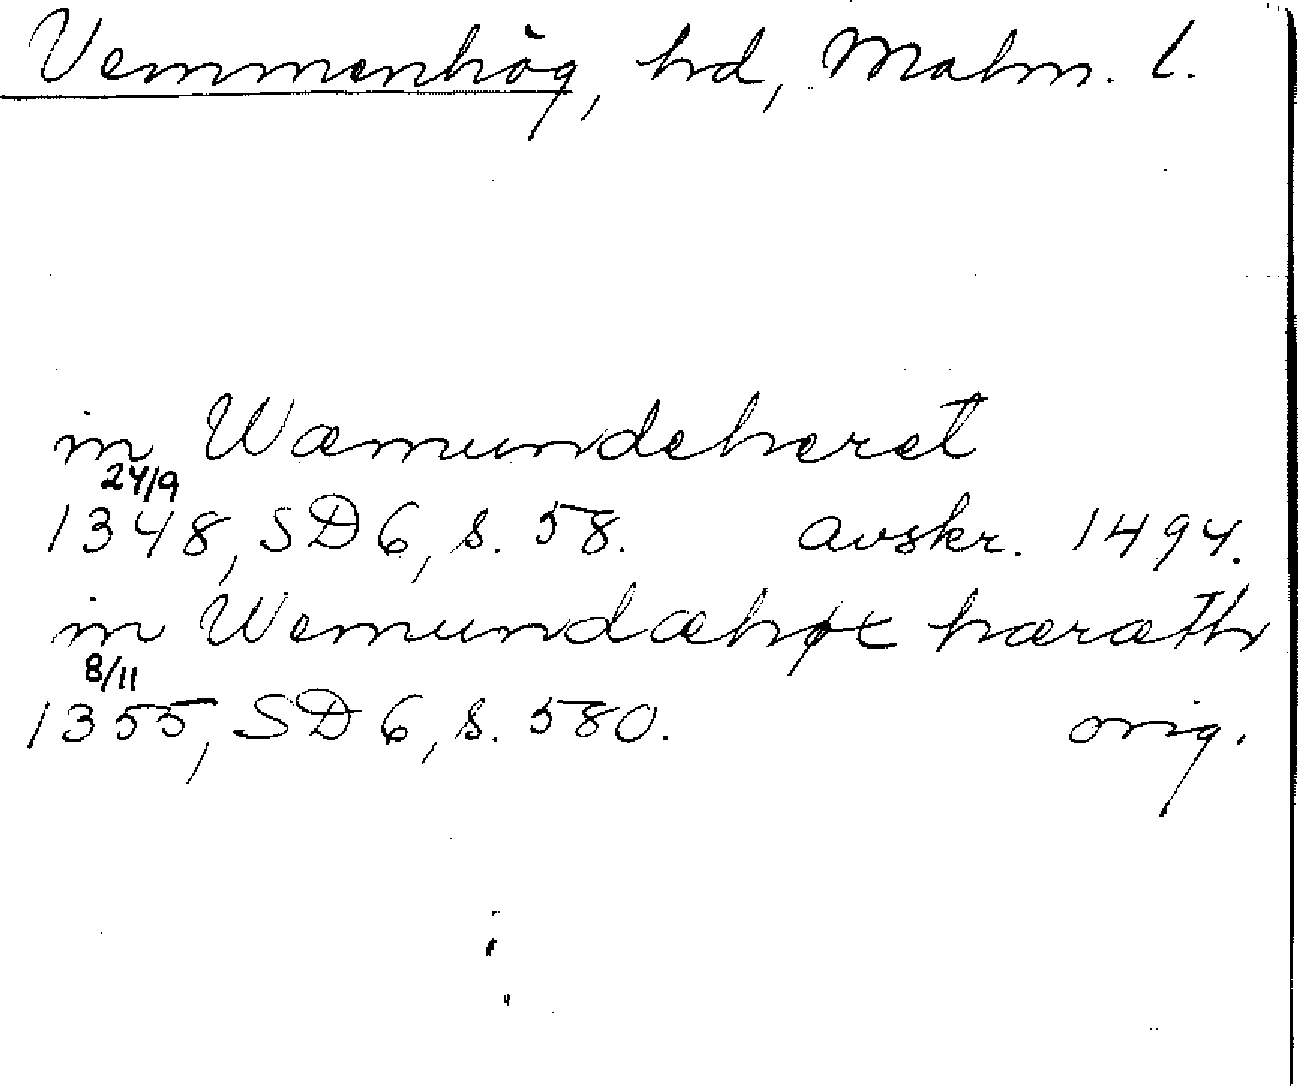 Vemmenhög, hd, Malm. l.
in Wæmundeheret
24/9
1348, SD 6, s. 58. avskr. 1494.
in Wemundæhøx hæræth
8/11
1355, SD 6, s. 580. orig.